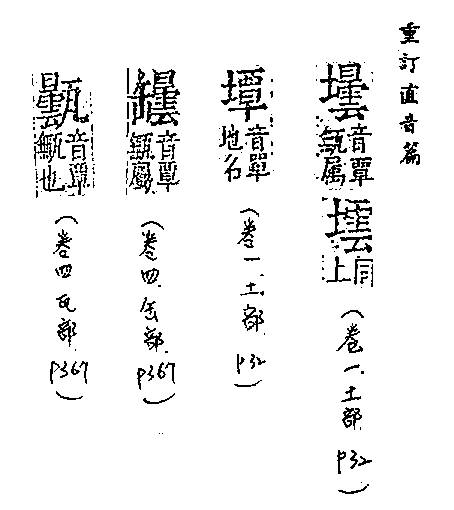 重訂直音篇
壜音覃属同上(卷一.土部P32)
墰音覃地名(卷一.土部P32)
罎音覃甒屬(卷四.缶部P367)
音覃甒也(卷四瓦部P367)